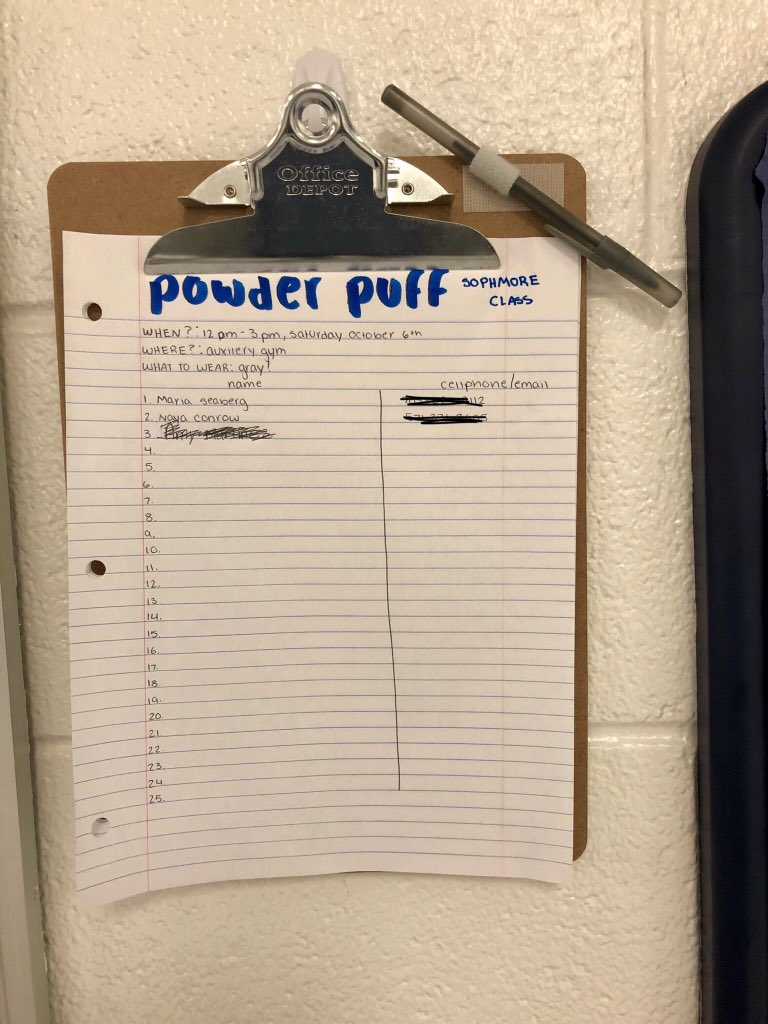 Office
DEPOT
powder puff SOPHMORE
CLASS
WHEN?: 12 pm - 3 pm, saturday october 6th
WHERE?: auxilery gym
WHAT TO WEAR: gray!
name cellphone/email
1. Maria seaberg 112
2. Naya conrow
3.
4.
5.
6.
7.
8.
9.
10.
11.
12.
13.
14.
15.
16.
17.
18.
19.
20.
21.
22.
23.
24.
25.